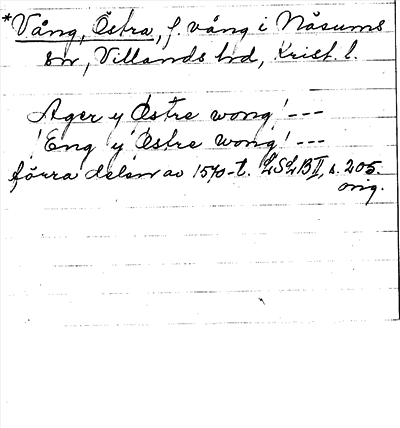 *Vång, Östra, f. vång i Näsums
sn, Villands hd, Krist. l.
Ager y Östre wong! ---
! Eng y Östre wong! ---
förra delen av 1570-t. LSLB II, s. 205.
orig.